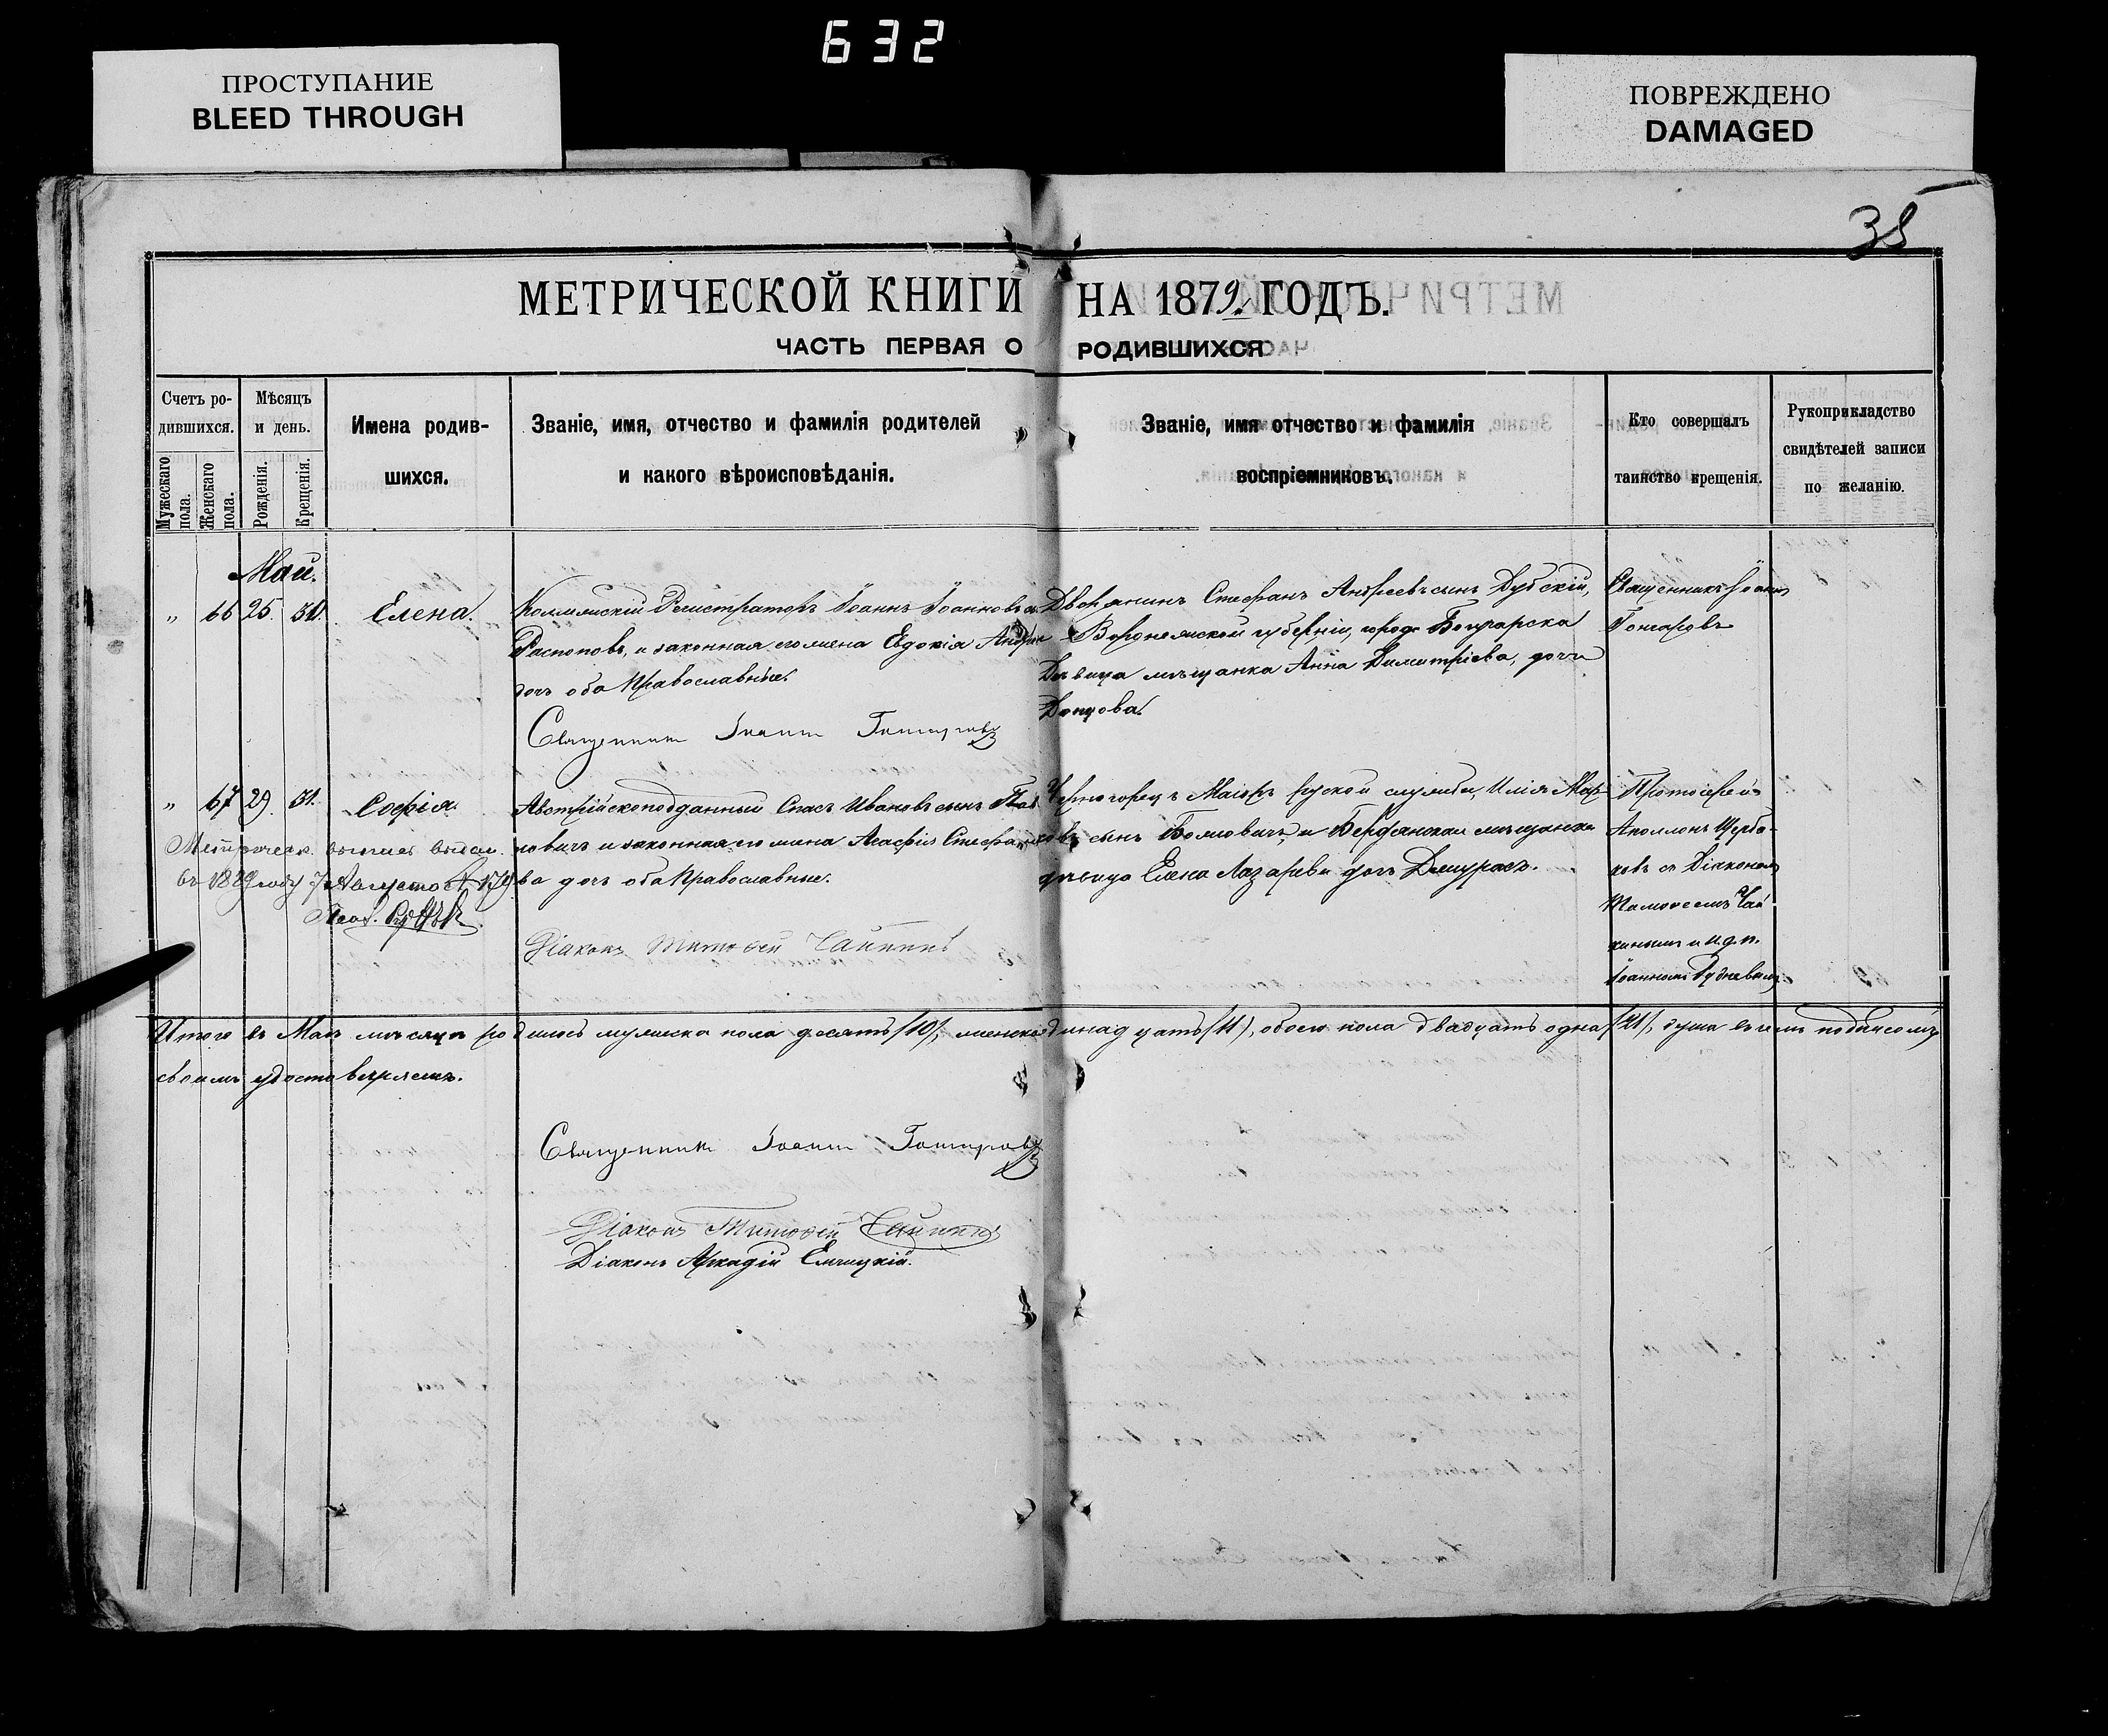 632
ПРОСТУПАНИЕ
BLEED THROUGH
ПОВРЕЖДЕНО
DAMAGED
38
МЕТРИЧЕСКОЙ КНИГИ НА 1879. ГОДЪ.
ЧАСТЬ ПЕРВАЯ О РОДИВШИХСЯ
Счетъ ро-
дившихся.
Мужескаго пола.
Женскаго пола.
Мѣсяцъ
и день.
Рожденія.
Крещенія.
Имена родив-
шихся.
Званіе, имя, отчество и фамилія родителей
и какого вѣроисповѣданія.
Званіе, имя отчество и фамилія
воспріемниковъ.
Кто совершалъ
таинство крещенія.
Рукоприкладство
свидѣтелей записи
по желанію.
Май.
„ 66 25. 30. Елена.
Коллежскій Регистраторъ Іоаннъ Іоанновъ
Распоповъ, и законная его жена Евдокія
дочь оба Православные.
Священник Іоанн Гончаровъ
Дворянинъ Стефанъ Андреевъ сынъ Дубскій,
Воронежской губерніи, города Богучарска
Дѣвица мѣщанка Анна Димитріева, дочь
Донцова.
Священникъ Іоаннъ
Гончаровъ
„ 67 29. 31. Софія.
Австрійскоподданный Спасъ Ивановъ сынъ
ковичъ и законная его жена Агафія
ва дочь оба Православные.
Діаконъ Тимофей Чайкинъ
Метрическ. выпись выдан.
въ 1889 году 7 Августа № 179
Черногорецъ Маіоръ руской службы, Илія Мар-
ковъ сынъ Божовичъ, и Бердянская мѣщанка
дѣвица Елена Лазарева дочь
Протоіерей
Аполлонъ Щерба-
ковъ съ Діакономъ
Тимофеемъ Чай-
кинымъ и и.д.п.
Іоанномъ Рудневымъ
Итого въ Маѣ мѣсяцѣ родилось мужеска пола десять /10/, женска одинадцать /11/, обоего пола двадцать одна /21/, душа въ чемъ подписомъ
своимъ удостовѣряемъ.
Священник Іоанн Гончаровъ
Діаконъ Тимофей Чайкинъ
Діаконъ Аркадій Емчицкій.